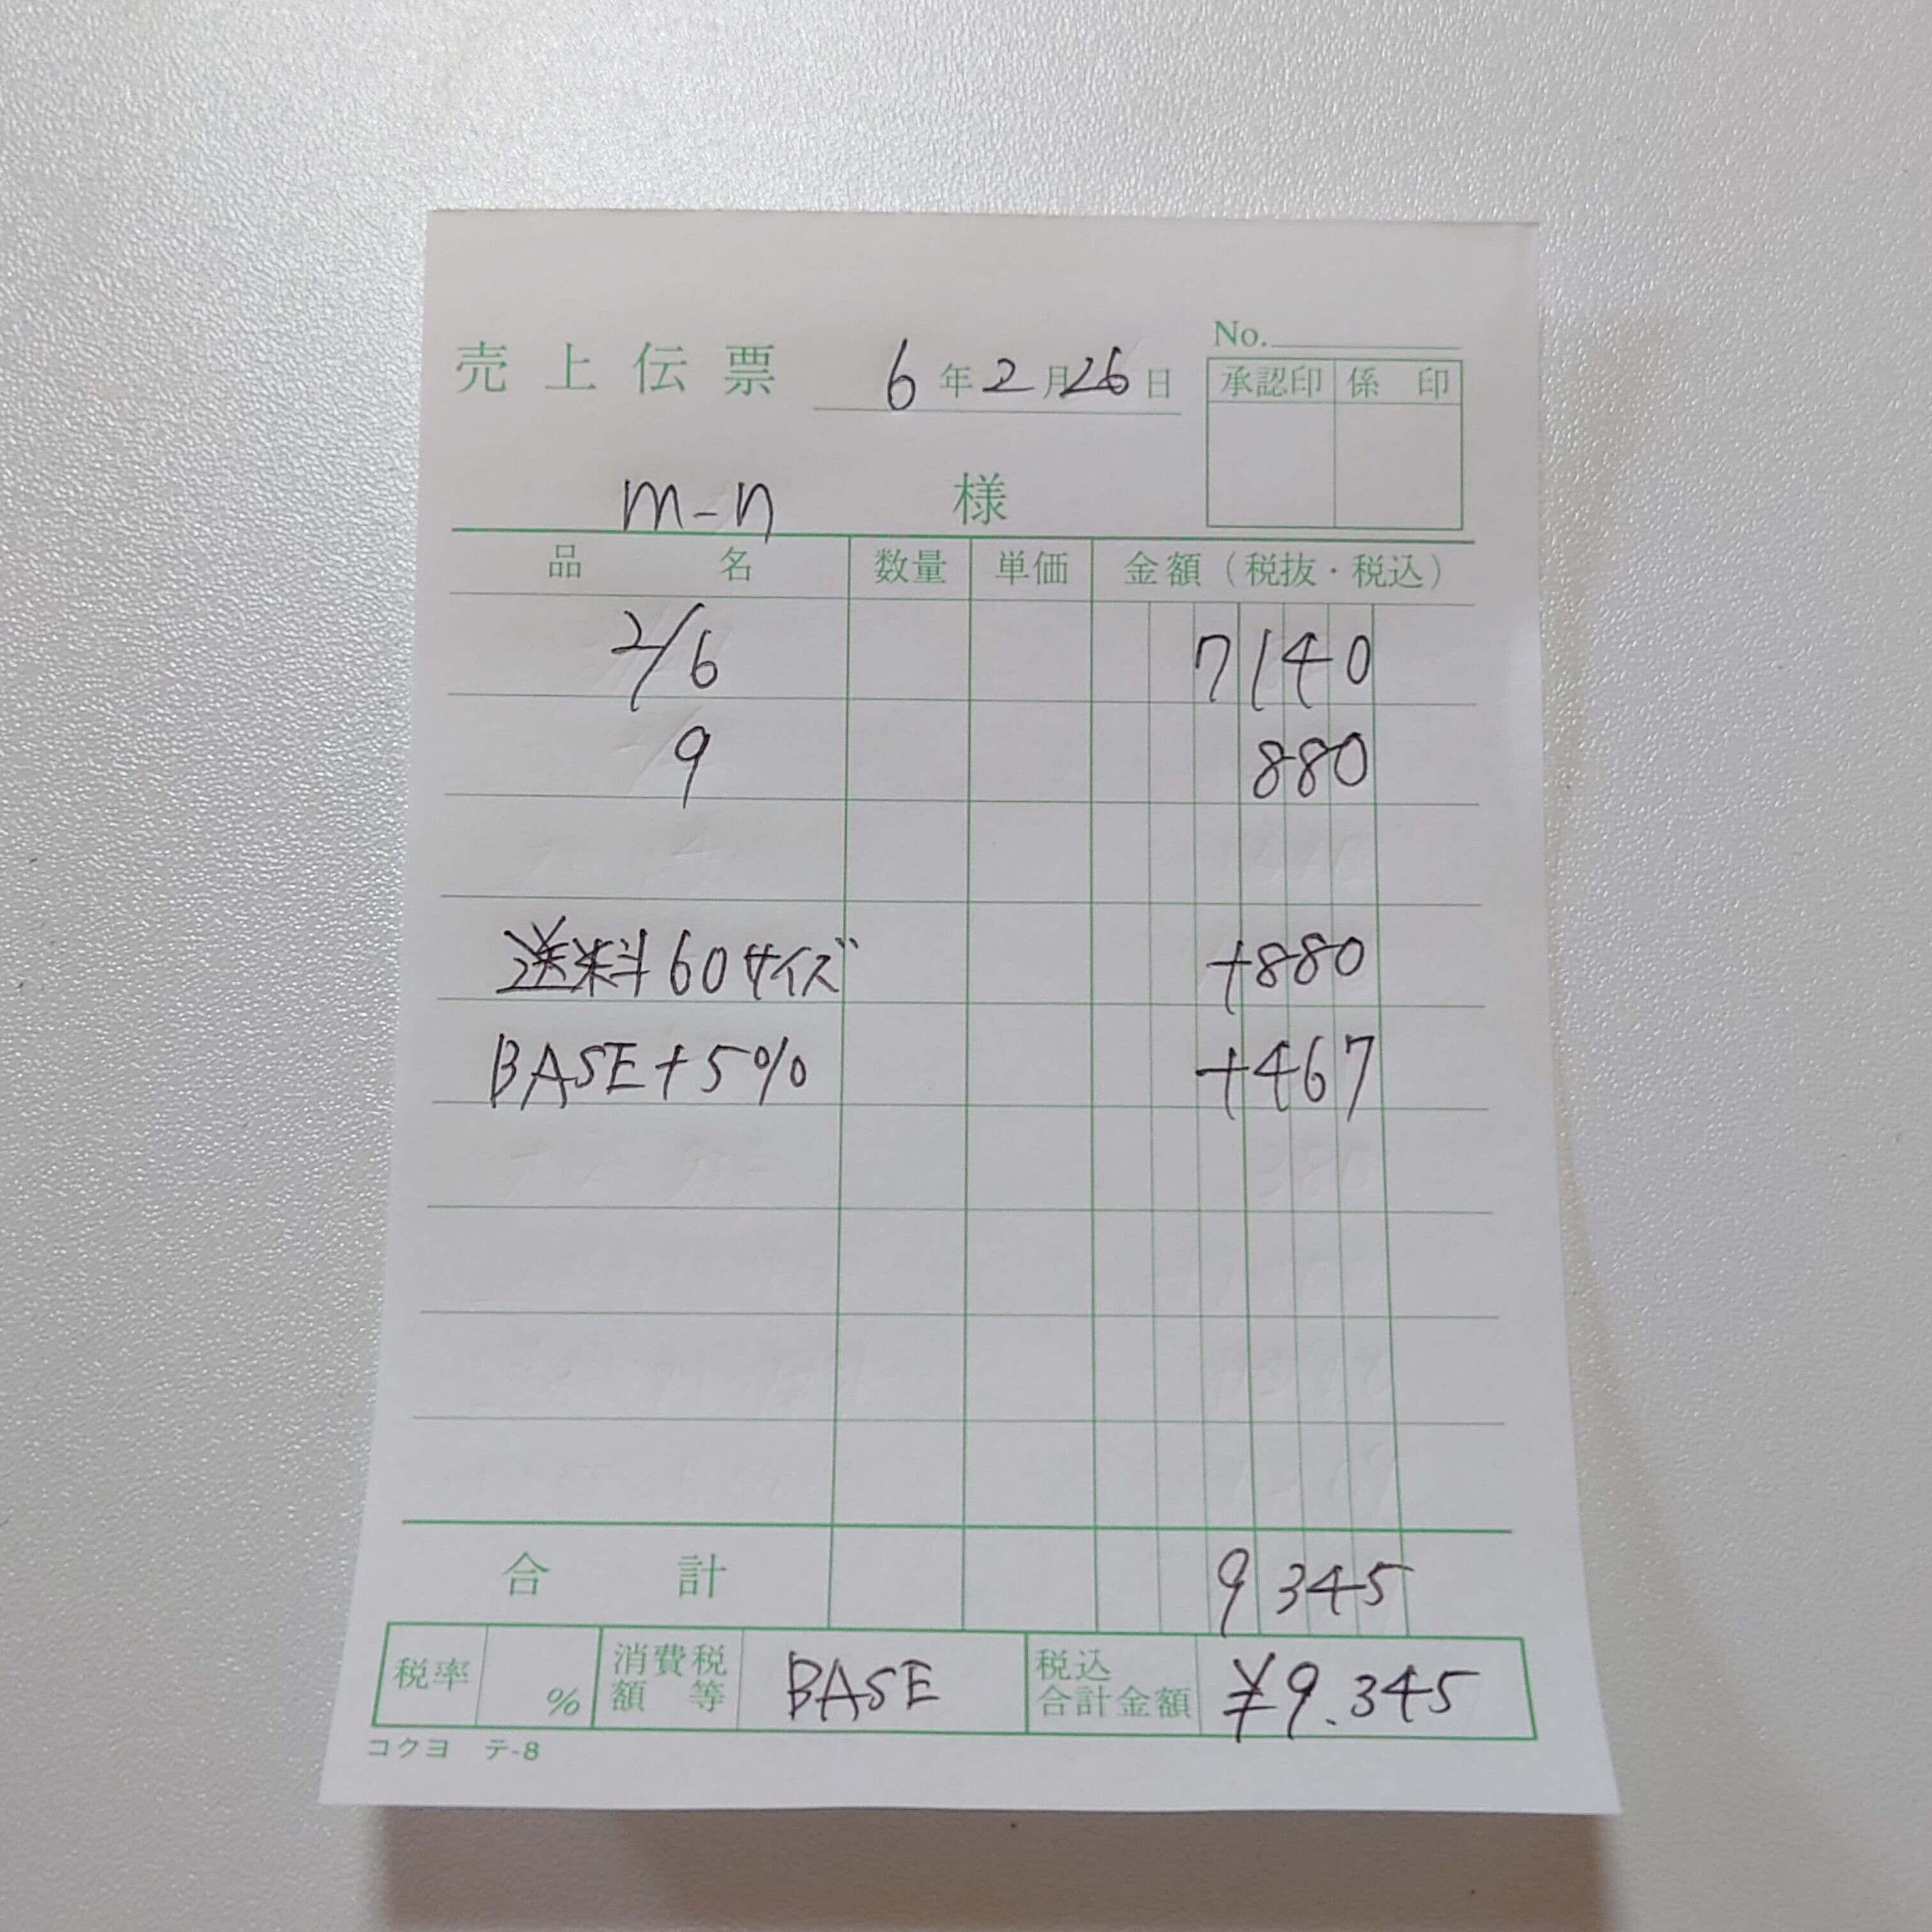 No.
売上伝票 6年2月26日
承認印 係印
m-n 様
品名 数量 単価 金額(税抜・税込)
2/6 7140
9 880
送料60サイズ +880
BASE+5% +467
合計 9345
税率 % 消費税額等 BASE 税込合計金額 ¥9.345
コクヨ テ-8